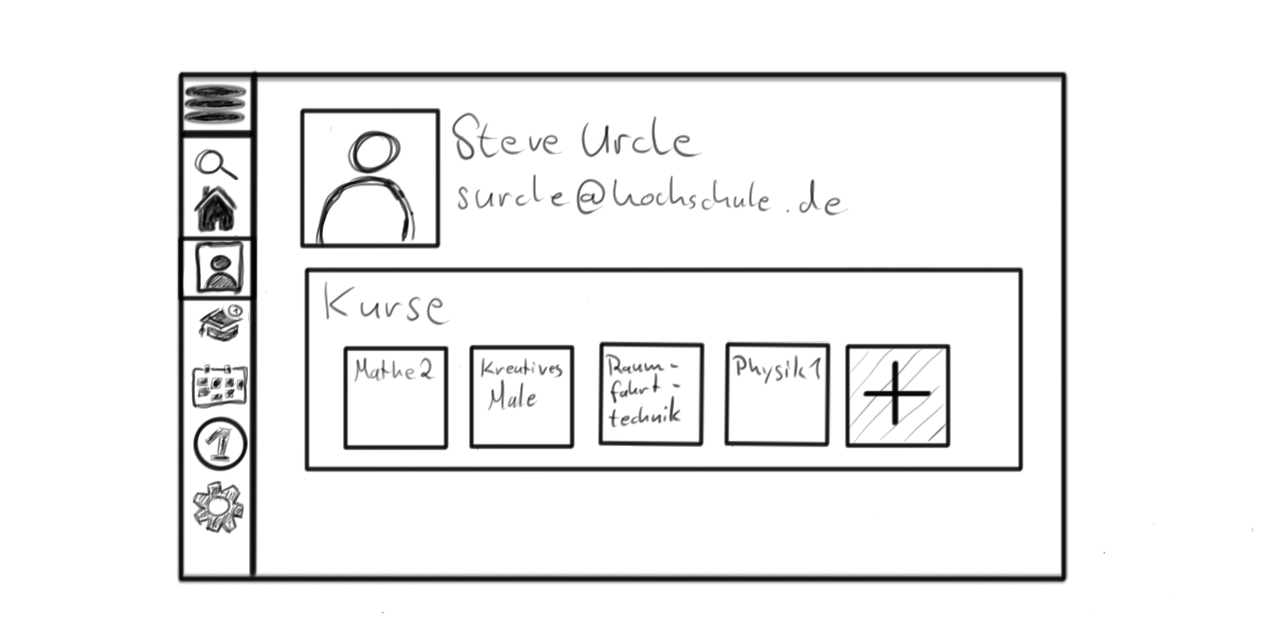 Steve Urcle
surcle@hochschule.de
Kurse
Mathe2
Kreatives
Male
Raum-
fahrt-
technik
Physik1
1